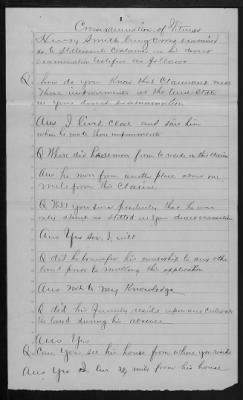 Cross examination of Witness
Henry Smith being cross examined
as to statements contained in his direct
examination testifies as follows
Q. how do you know that Claimant made
those improvements on the land stated
in your direct examination
Ans I live close and saw him
when he made those improvements
Q Where did he move from to reside on this claim
Ans he move from another place about one
mile from this Claim
Q Will you swear positively that he was
only absent as stated in your direct examination
Ans Yes Sir, I will
Q did he transfer his ownership to any other
land prior to making this application
Ans not to my Knowledge
Q did his family reside upon and cultivate
the land during his absence
Ans Yes
Q Can you see his house from where you reside
Ans Yes I live ½ mile from his house